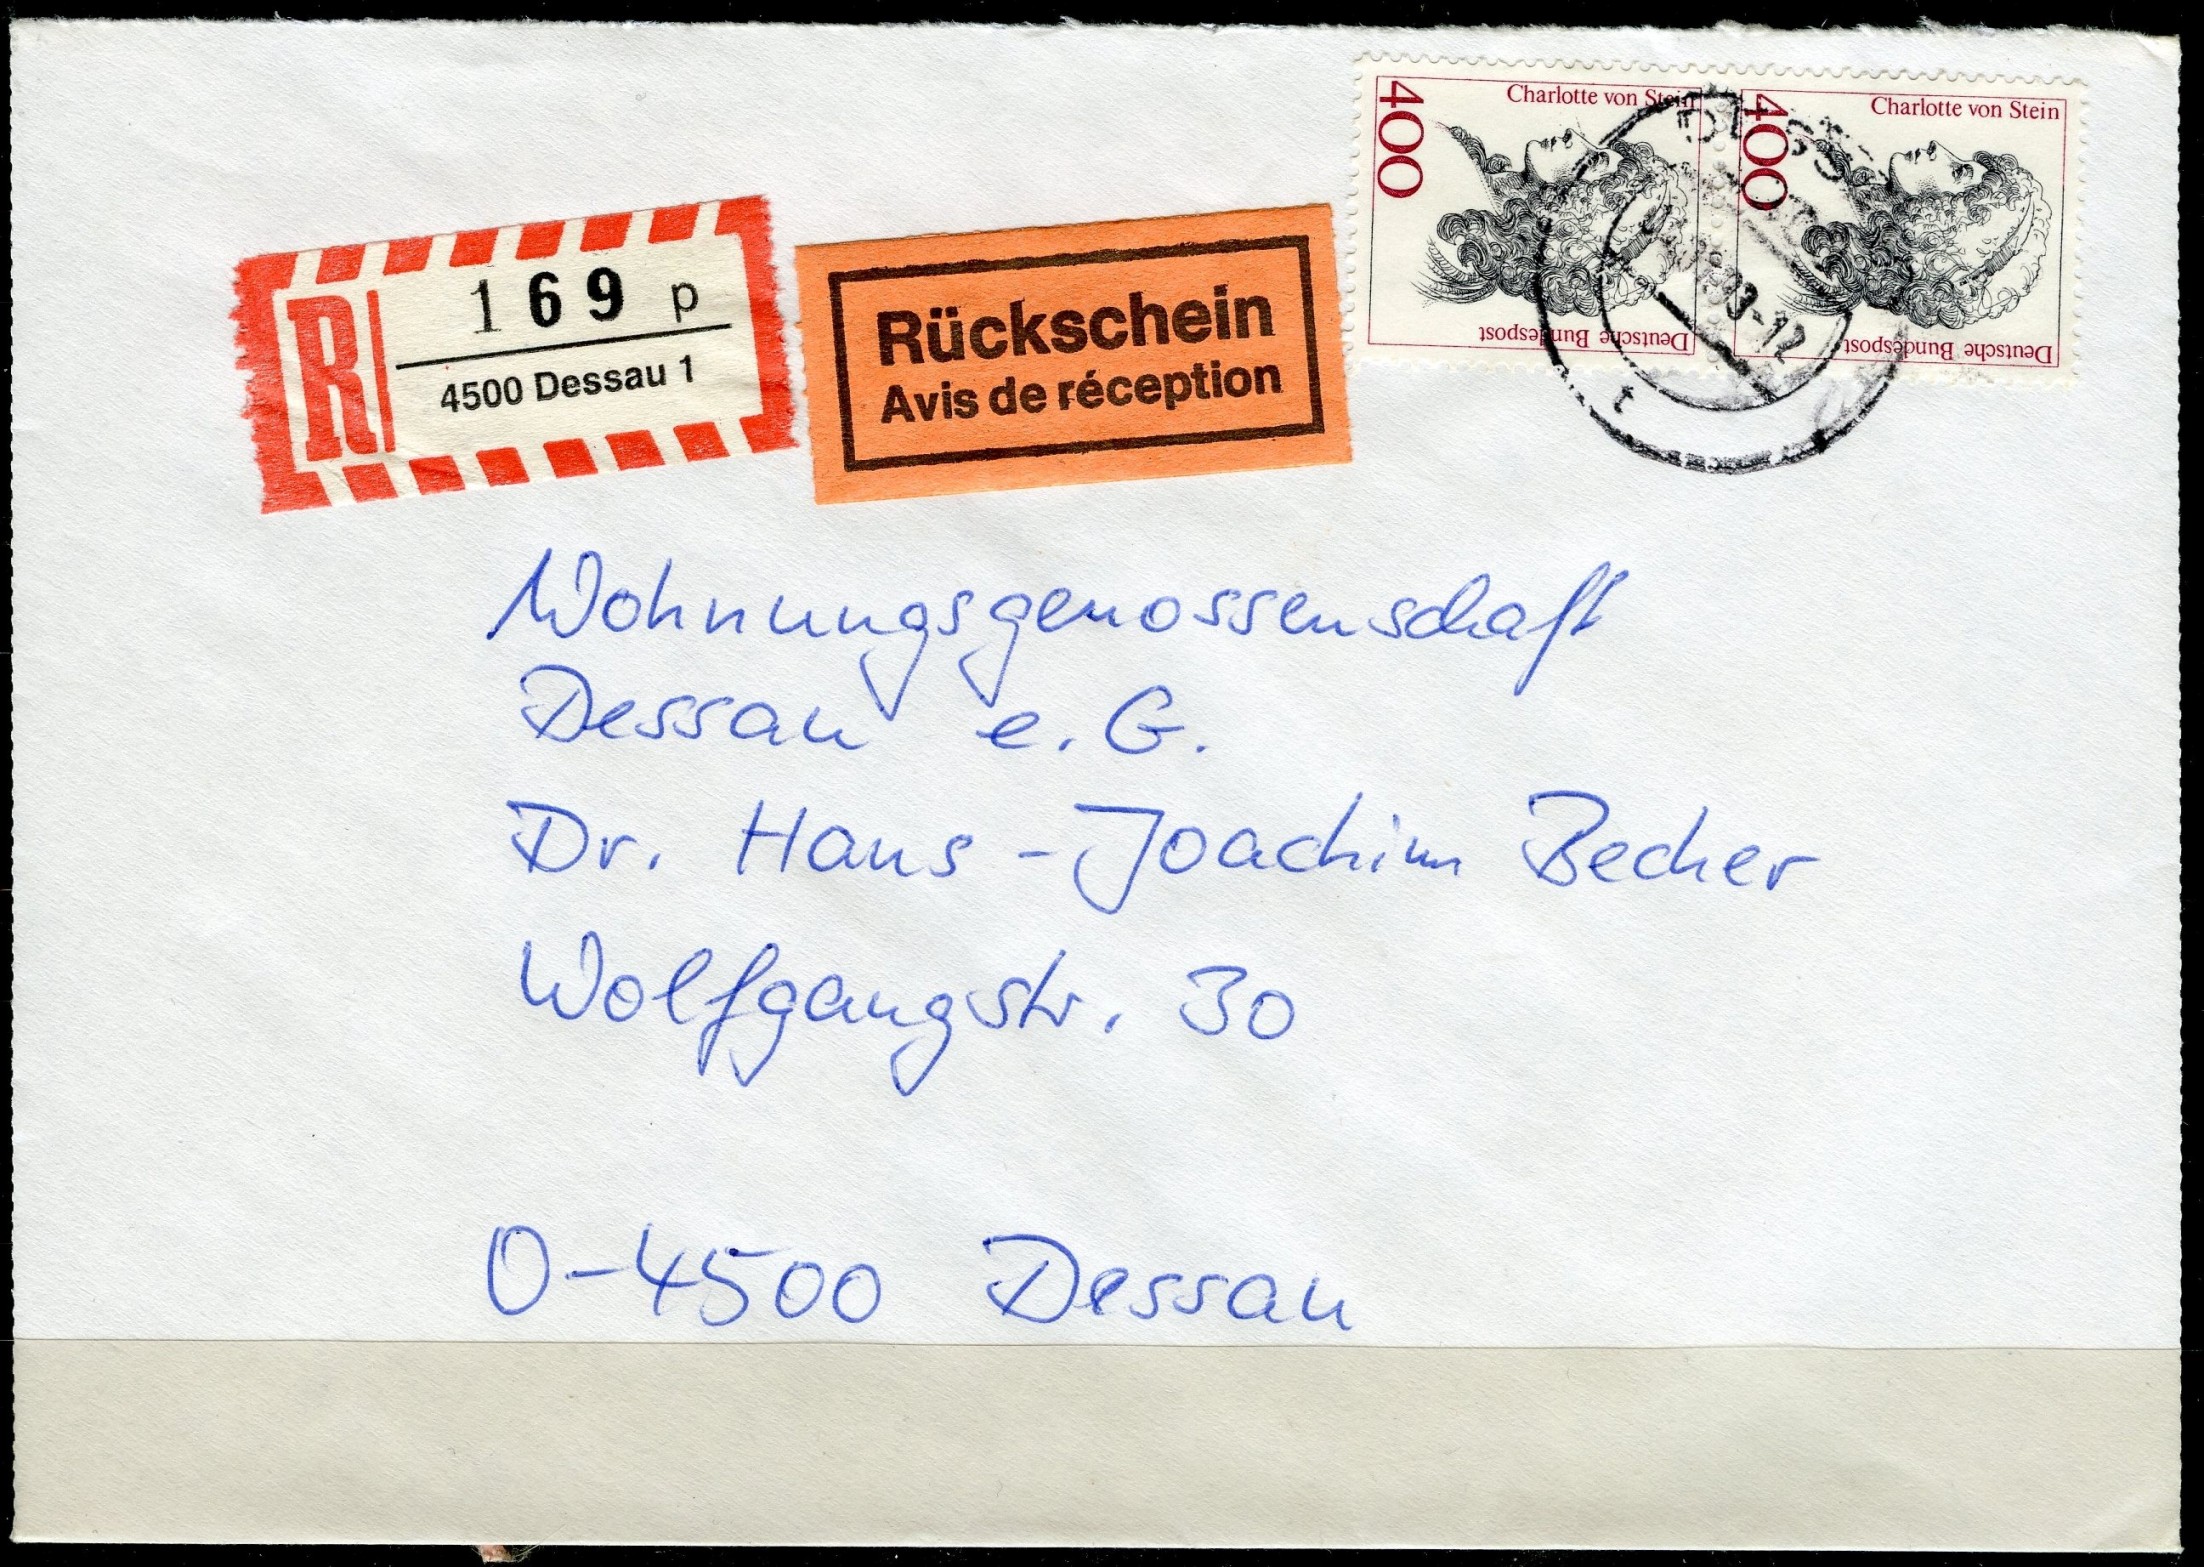 R
169 p
4500 Dessau 1
Rückschein
Avis de réception
400
Charlotte von Stein
Deutsche Bundespost
400
Charlotte von Stein
Deutsche Bundespost
93-12
t
Wohnungsgenossenschaft
Dessau e. G.
Dr. Hans-Joachim Becher
Wolfgangstr. 30
O-4500 Dessau